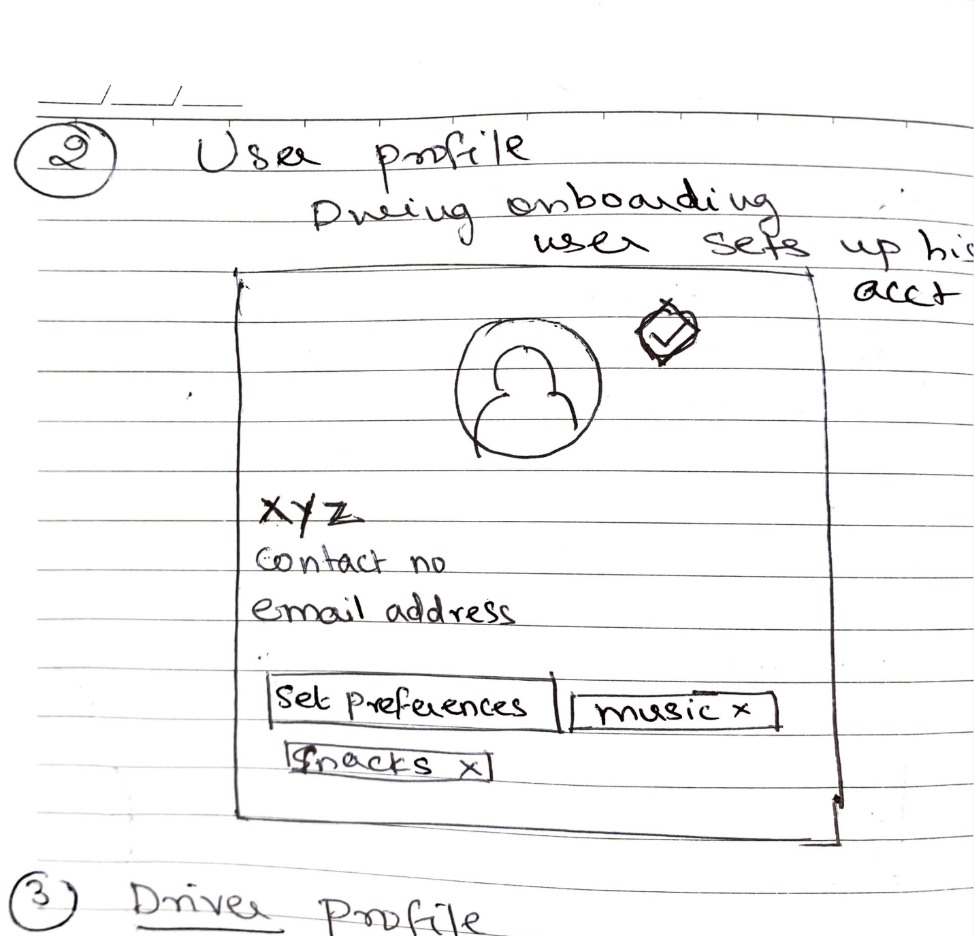 2 User profile
During onboarding
user sets up his
acct
XYZ
Contact no
email address
Set preferences music x
Snacks x
3 Driver Profile